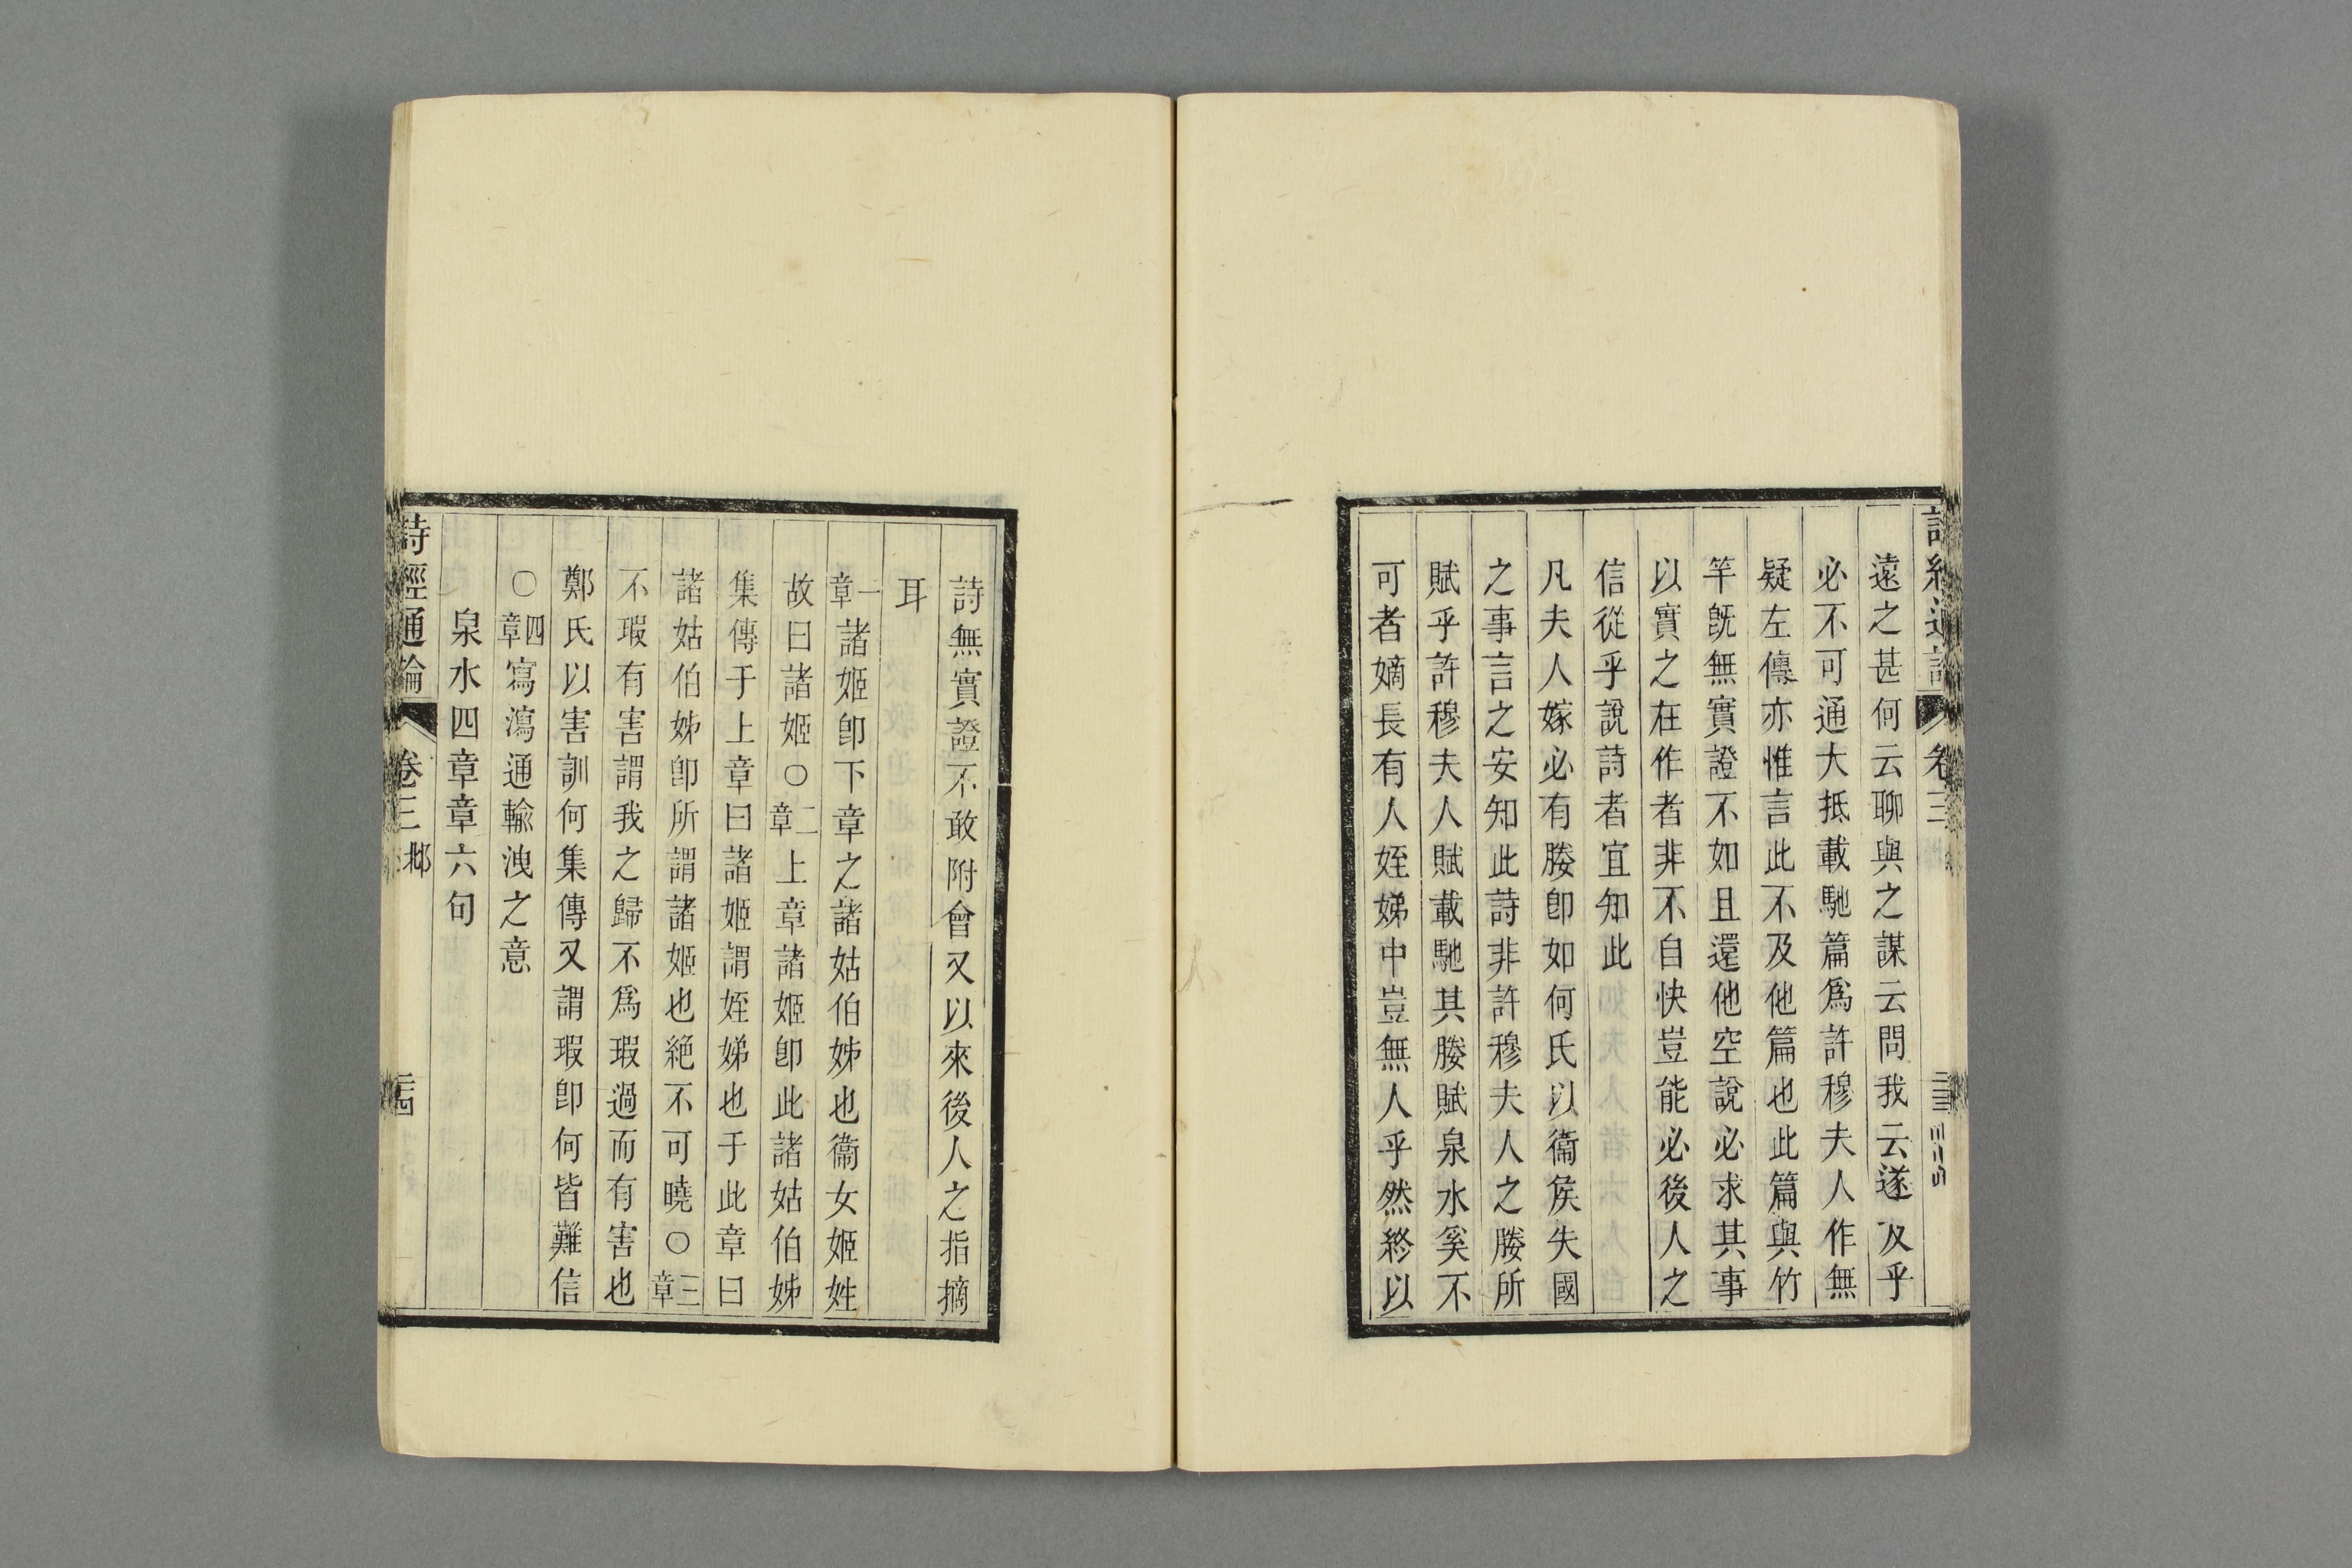 遠之甚何云聊與之謀云問我云遂及乎
必不可通大抵載馳篇爲許穆夫人作無
疑左傳亦惟言此不及他篇也此篇與竹
竿旣無實證不如且還他空說必求其事
以實之在作者非不自快豈能必後人之
信從乎說詩者宜知此
凡夫人嫁必有媵卽如何氏以衞侯失國
之事言之安知此詩非許穆夫人之媵所
賦乎許穆夫人賦載馳其媵賦泉水奚不
可者嫡長有人姪娣中豈無人乎然終以
詩無實證不敢附會又以來後人之指摘
耳
一章諸姬卽下章之諸姑伯姊也衞女姬姓
故曰諸姬○二章上章諸姬卽此諸姑伯姊
集傳于上章曰諸姬謂姪娣也于此章曰
諸姑伯姊卽所謂諸姬也絕不可曉○三章
不瑕有害謂我之歸不爲瑕過而有害也
鄭氏以害訓何集傳又謂瑕卽何皆難信
○四章寫瀉通輸洩之意
泉水四章章六句
詩經通論 卷三 邶